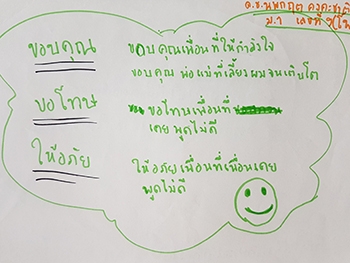 ด.ช. นพกฤต
ม.1 เลขที่
ขอบคุณ ขอบคุณเพื่อนที่ให้กำลังใจ
ขอบคุณ พ่อแม่ที่เลี้ยงผมจนเติบโต
ขอโทษ ขอโทษเพื่อนที่
เคย พูดไม่ดี
ให้อภัย ให้อภัยเพื่อนที่เพื่อนเคย
พูดไม่ดี